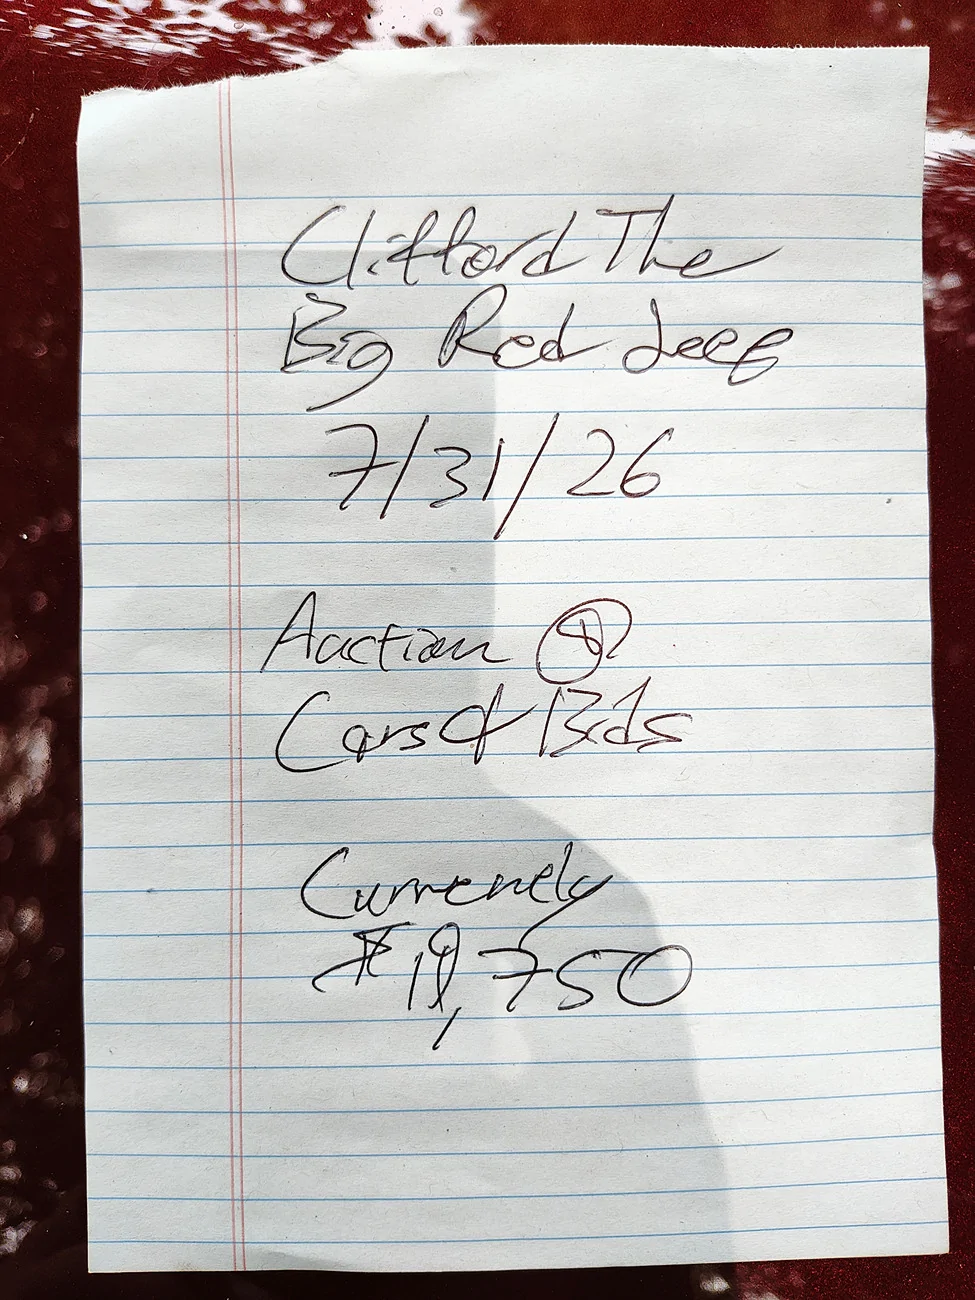 Clifford The
Big Red Jeep
7/31/26
Auction @
Cars & Bids
Currently
$19,750